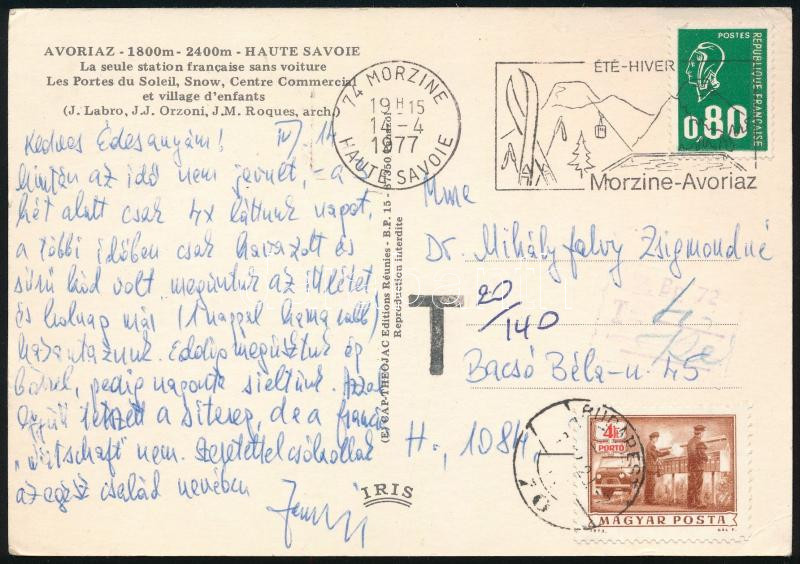 AVORIAZ - 1800m - 2400m - HAUTE SAVOIE
La seule station française sans voiture
Les Portes du Soleil, Snow, Centre Commercial
et village d'enfants
(J. Labro, J.J. Orzoni, J.M. Roques, arch.)
Kedves Édesanyám! IV. 14
Miután az idő nem javult, - a
hét alatt csak 4x láttunk napot,
a többi időben csak havazott és
sűrű köd volt meguntuk az ittlétet
és holnap már (1 nappal hamarabb)
hazautazunk. Eddig megúsztuk ép
bőrrel, pedig naponta síeltünk.
tetszett a síterep, de a francia
"Wirtschaft" nem. Szeretettel csókollak
az egész család nevében
74 MORZINE
19H15
14-4
1977
HAUTE SAVOIE
ÉTÉ-HIVER
Morzine-Avoriaz
POSTES
REPUBLIQUE FRANÇAISE
0,80
(E) CAP-THEOJAC Editions Réunies - B.P. 15 - 87350 Panazol
Reproduction interdite
IRIS
Mme
Dr. Mihályfalvy Zsigmondné
T
20/140
Bp. 72
Bacsó Béla-u. 45
H., 1084.
BUDAPEST
4Ft
PORTÓ
MAGYAR POSTA
1973